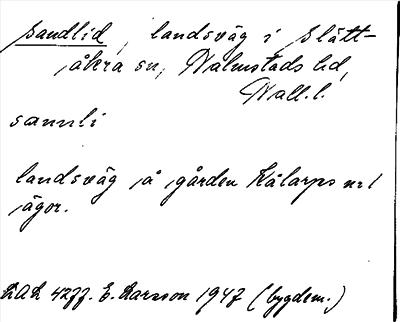 sandlid, landsväg i Slätt-
åkra sn, Halmstads hd,
Hall.l.
sannli
landsväg på gården Kålarps nr 1
ägor.
LAL 4277. E. Larsson 1947 (bygdem.)